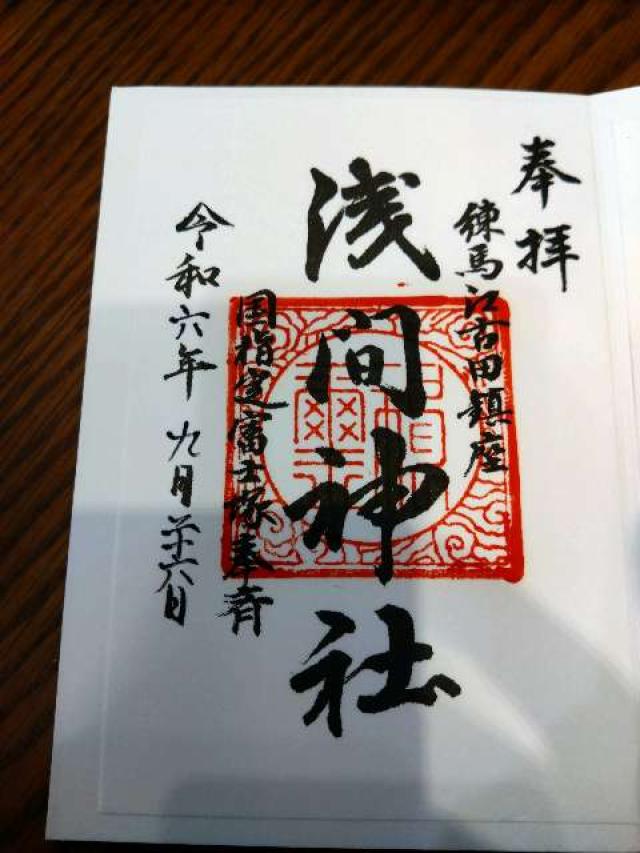 奉拝
練馬江古田鎮座
浅間神社
国指定富士塚奉斎
令和六年 九月二十六日